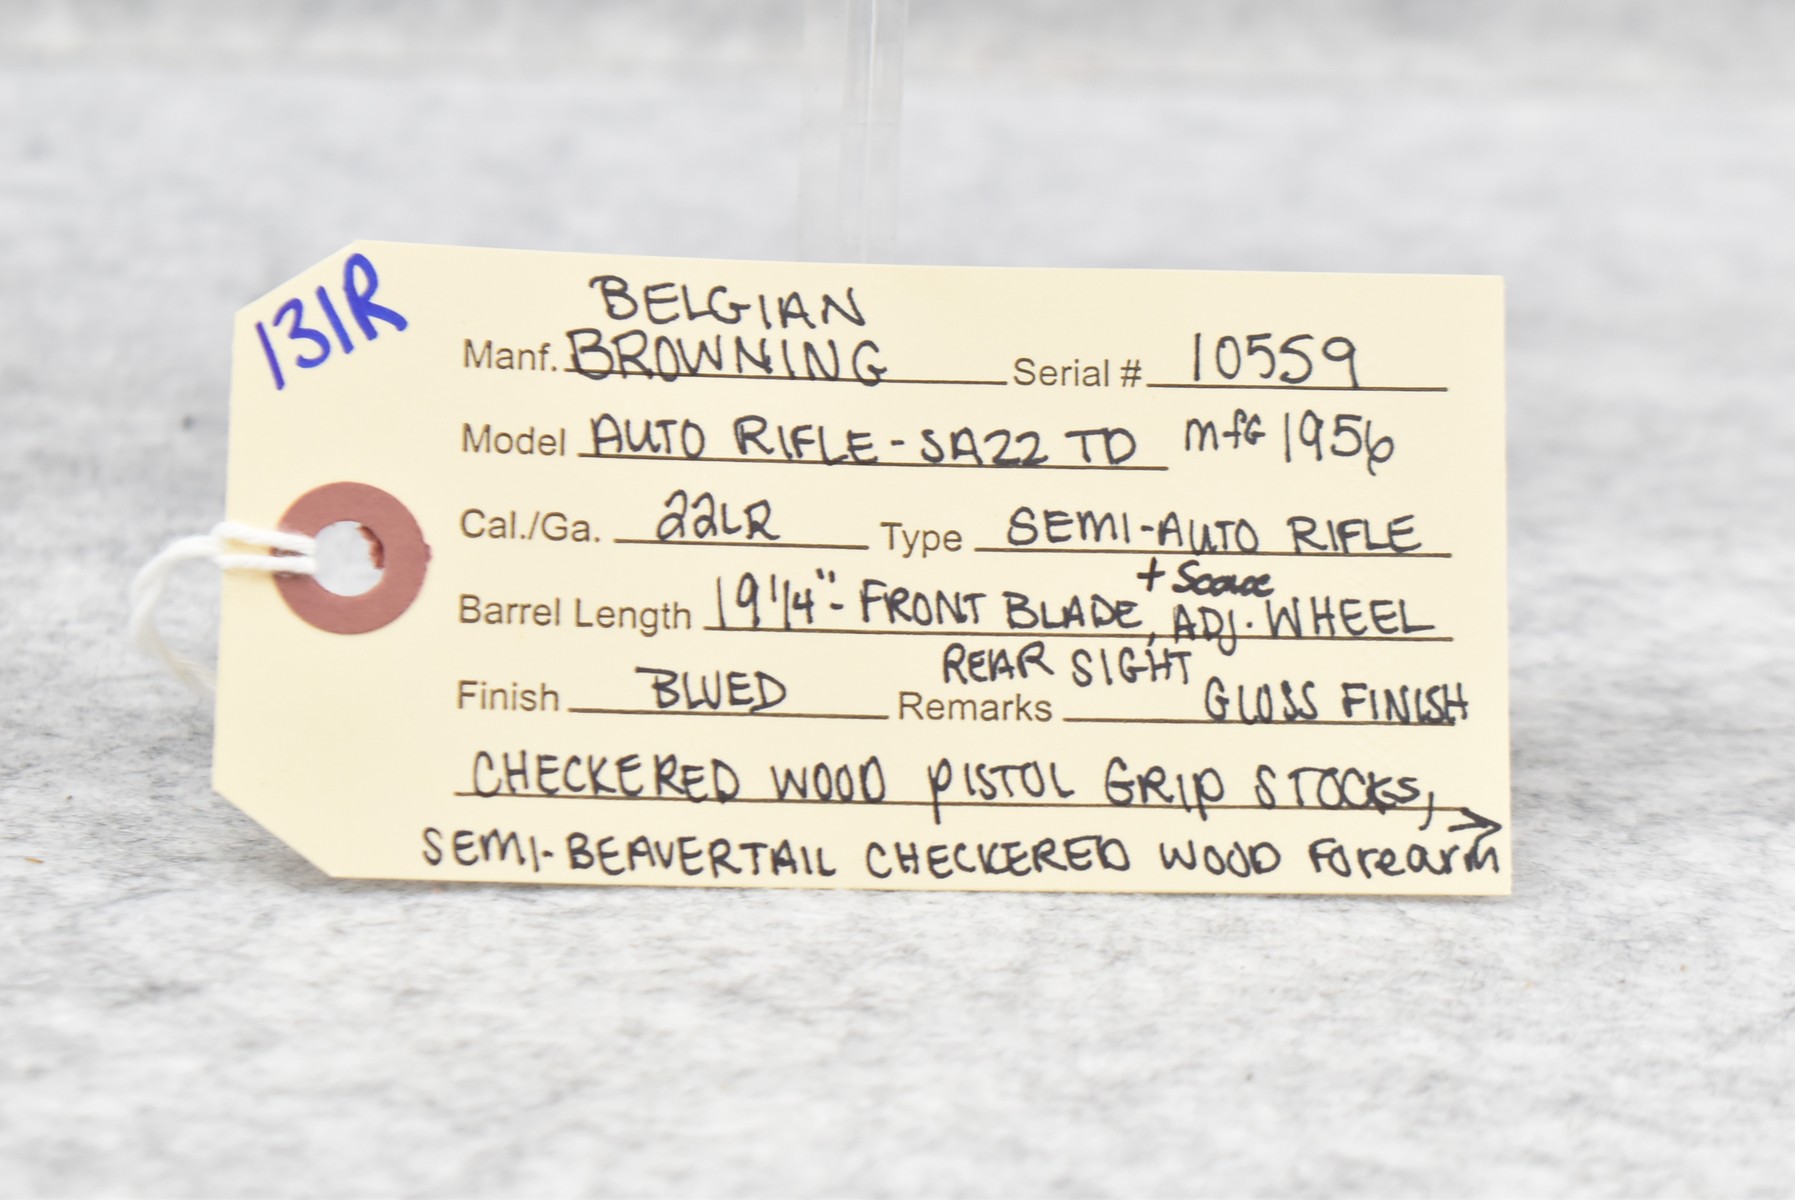 131R
BELGIAN
Manf. BROWNING Serial # 10559
Model AUTO RIFLE-SA22 TD mfG 1956
Cal./Ga. 22LR Type SEMI-AUTO RIFLE
+ Scarce
Barrel Length 19 1/4"- FRONT BLADE, ADJ. WHEEL
REAR SIGHT
Finish BLUED Remarks GLOSS FINISH
CHECKERED WOOD PISTOL GRIP STOCKS,
SEMI-BEAVERTAIL CHECKERED WOOD Forearm →